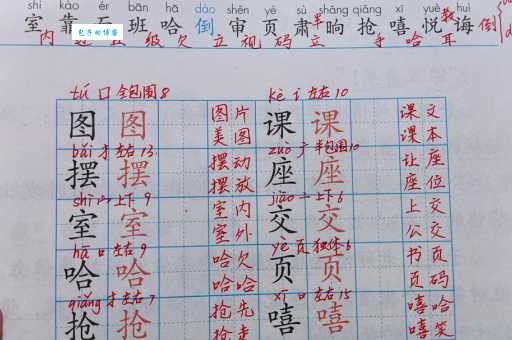 shì bān hā dào shěn yè sù shǎng qiǎng xī yuè huì
室 靠 班 哈 倒 审 页 肃 晌 抢 嘻 悦 诲 倒
包子的博客
内 级 欠 立 视 码 立 半 手 哈 耳 教
tú 口 全包围 8 kè 讠 左右 10
图 图 图片 美图 课 课 课文 课本
bǎi 扌 左右 13 zuò 广 半包围 10
摆 摆 摆动 摆放 座 座 让座 座位
shì 宀 上下 9 jiāo 亠 上下 6
室 室 室内 室外 交 交 上交 公交
hā 口 左右 9 yè 页 独体 6
哈 哈 哈欠 哈哈 页 页 书页 页码
qiǎng 扌 左右 7 xī 口 左右 15
抢 抢 抢先 抢走 嘻 嘻 嘻哈 嘻笑